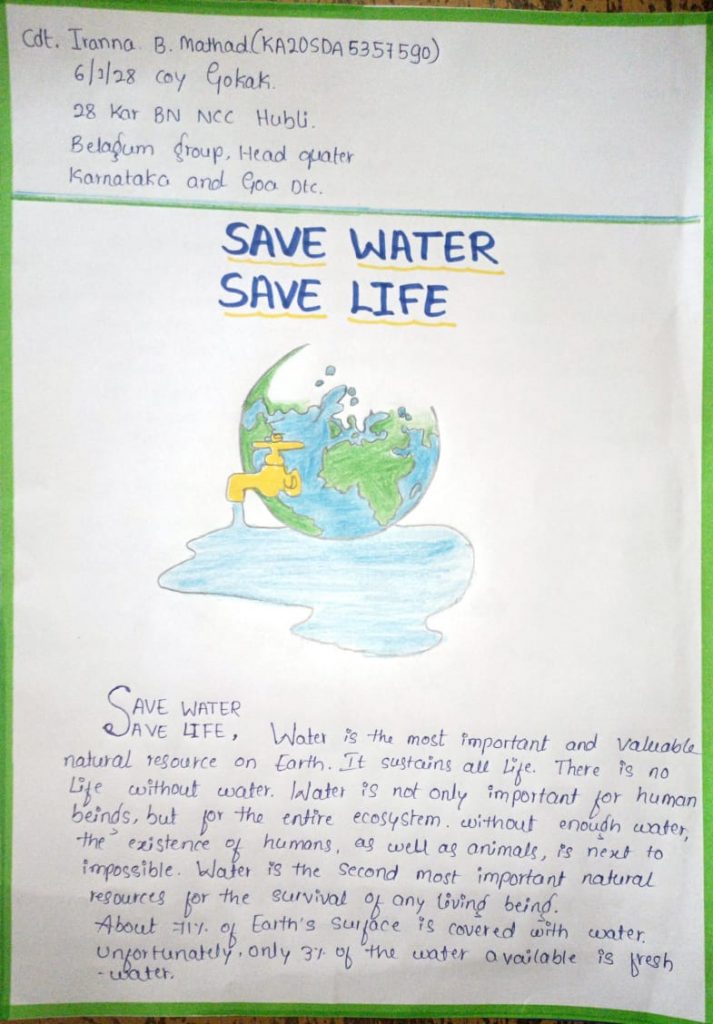 Cdt. Iranna B. Mathad (KA20SDA5357590)
6/1/28 coy Gokak.
28 Kar BN NCC Hubli.
Belagum group, Head quater
Karnataka and Goa Dtc.
SAVE WATER
SAVE LIFE
SAVE WATER
SAVE LIFE, Water is the most important and valuable
natural resource on Earth. It sustains all life. There is no
Life without water. Water is not only important for human
beinds, but for the entire ecosystem. without enough water,
the existence of humans, as well as animals, is next to
impossible. Water is the second most important natural
resources for the survival of any living being.
About 71% of Earth's surface is covered with water.
Unfortunately, only 3% of the water available is fresh
-water.